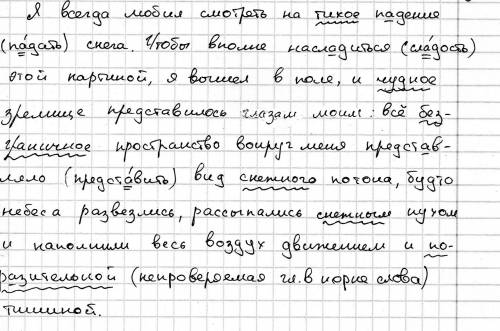 Я всегда любил смотреть на тихое падение
(па́дать) снега. Чтобы вполне насладиться (сла́дость)
этой картиной, я вышел в поле, и чудное
зрелище представилось глазам моим: всё без-
граничное пространство вокруг меня представ-
ляло (предста́вить) вид снежного потока, будто
небеса разверзлись, рассыпались снежным пухом
и наполнили весь воздух движением и по-
разительной (непроверяемая гл. в корне слова)
тишиной.